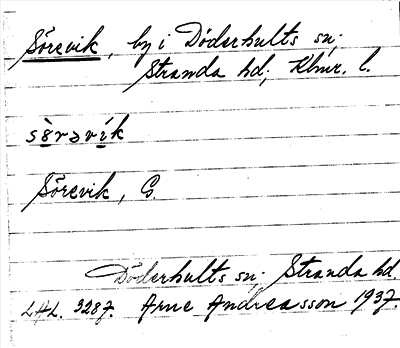 Sörevik, by i Döderhults sn;
Stranda hd; Klmr. l.
sörəvik
Sörevik, G.
Döderhults sn; Stranda hd
LAL. 3287. Arne Andreasson 1937.